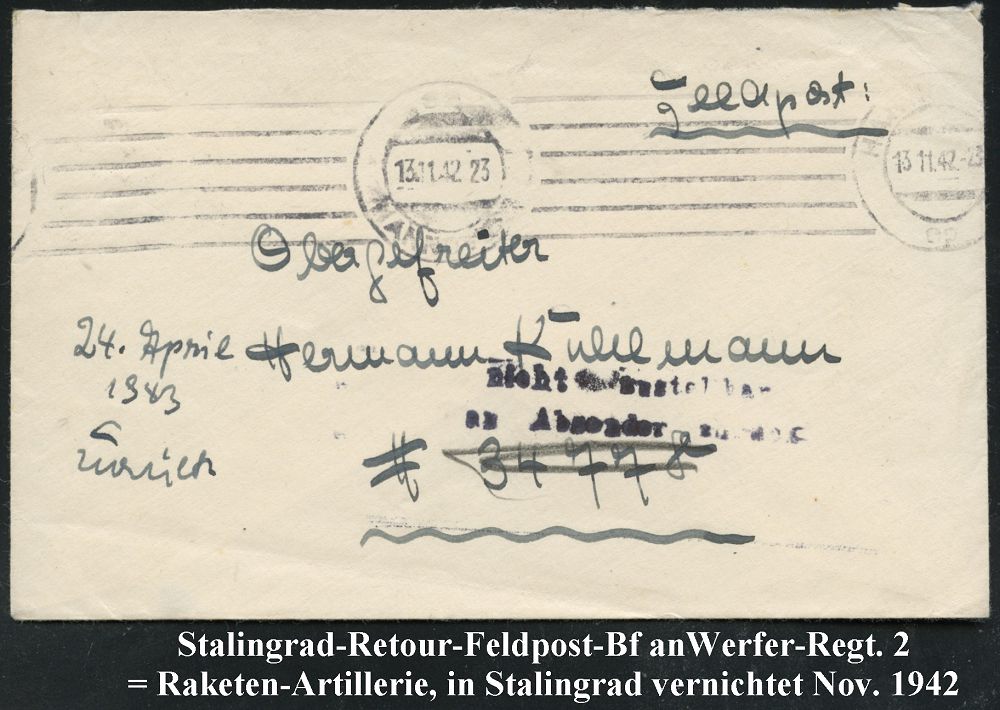 Feldpost:
13.11.42 23
13 11.42-23
Obergefreiter
24. April
1943
zurück
Hermann Kuhlmann
Nicht zustellba-
an Absender zurück
# 34778
Stalingrad-Retour-Feldpost-Bf anWerfer-Regt. 2
= Raketen-Artillerie, in Stalingrad vernichtet Nov. 1942